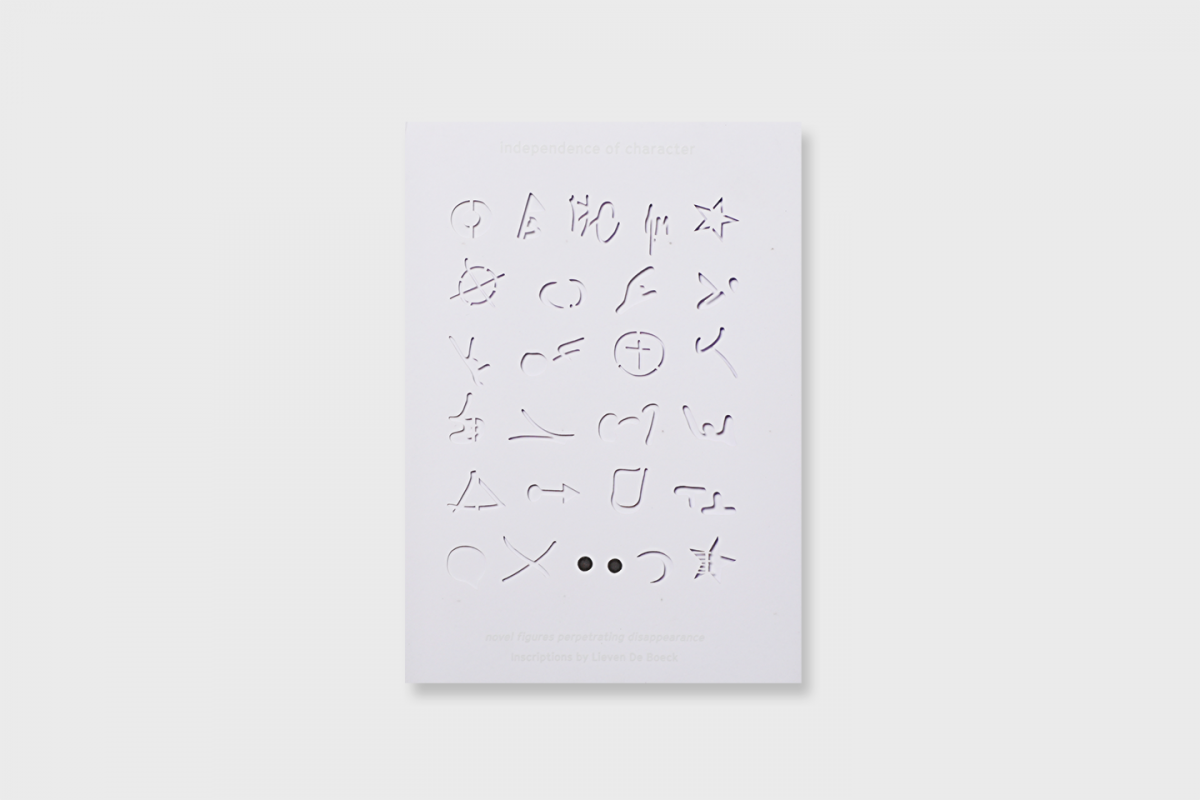 independence of character
novel figures perpetrating disappearance
inscriptions by Lieven De Boeck